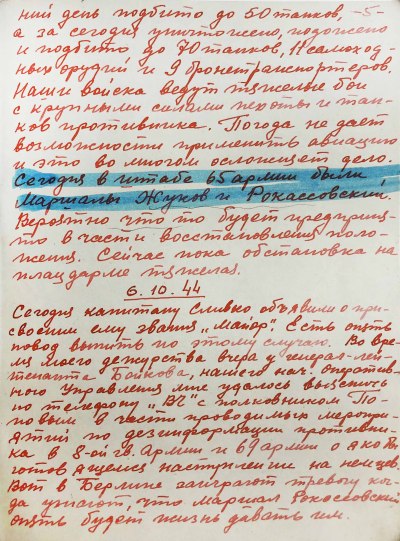 ний день подбито до 50 танков, -5-
а за сегодня уничтожено, подожено
и подбито до 70 танков, 11 самоход-
ных орудий и 9 бронетранспортеров.
Наши войска ведут тяжелые бои
с крупными силами пехоты и тан-
ков противника. Погода не дает
возможности применить авиацию
и это во многом осложняет дело.
Сегодня в штабе 65 армии были
Маршалы Жуков и Рокассовский.
Вероятно что то будет предприня-
то в части восстановления поло-
жения. Сейчас пока обстановка на
плацдарме тяжелая.
6.10.44
Сегодня капитану Сливко, объявили о при-
своении ему звания „майор". Есть опять
повод выпить по этому случаю. Во вре-
мя моего дежурства вчера у генерал-лей-
тенанта Бойкова, нашего нач. оператив-
ного Управления мне удалось выяснить
по телефону „ВЧ" с полковником По-
повым в части проводимых меропри-
ятий по дезинформации противни-
ка в 8-ой гв. Армии и 69 армии о якобы
готовящемся наступлении на немцев.
Вот в Берлине заиграют тревогу ког-
да узнают, что Маршал Рокоссовский
опять будет жизнь давать им.